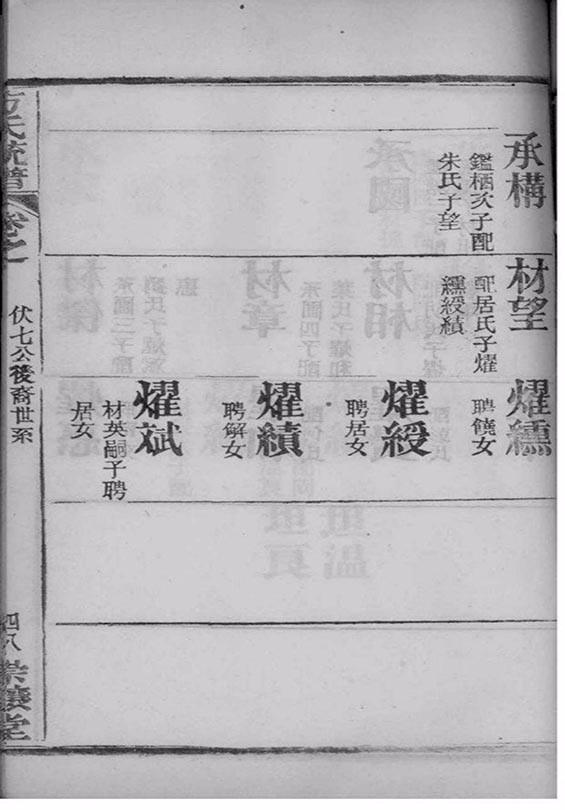 承構
鑑栖次子配
朱氏子望
材望
配居氏子燿
纁綬績
燿纁
聘饒女
燿綬
聘居女
燿績
聘解女
燿斌
材英嗣子聘
居女
方氏統譜
卷之一
伏七公後裔世系
四八